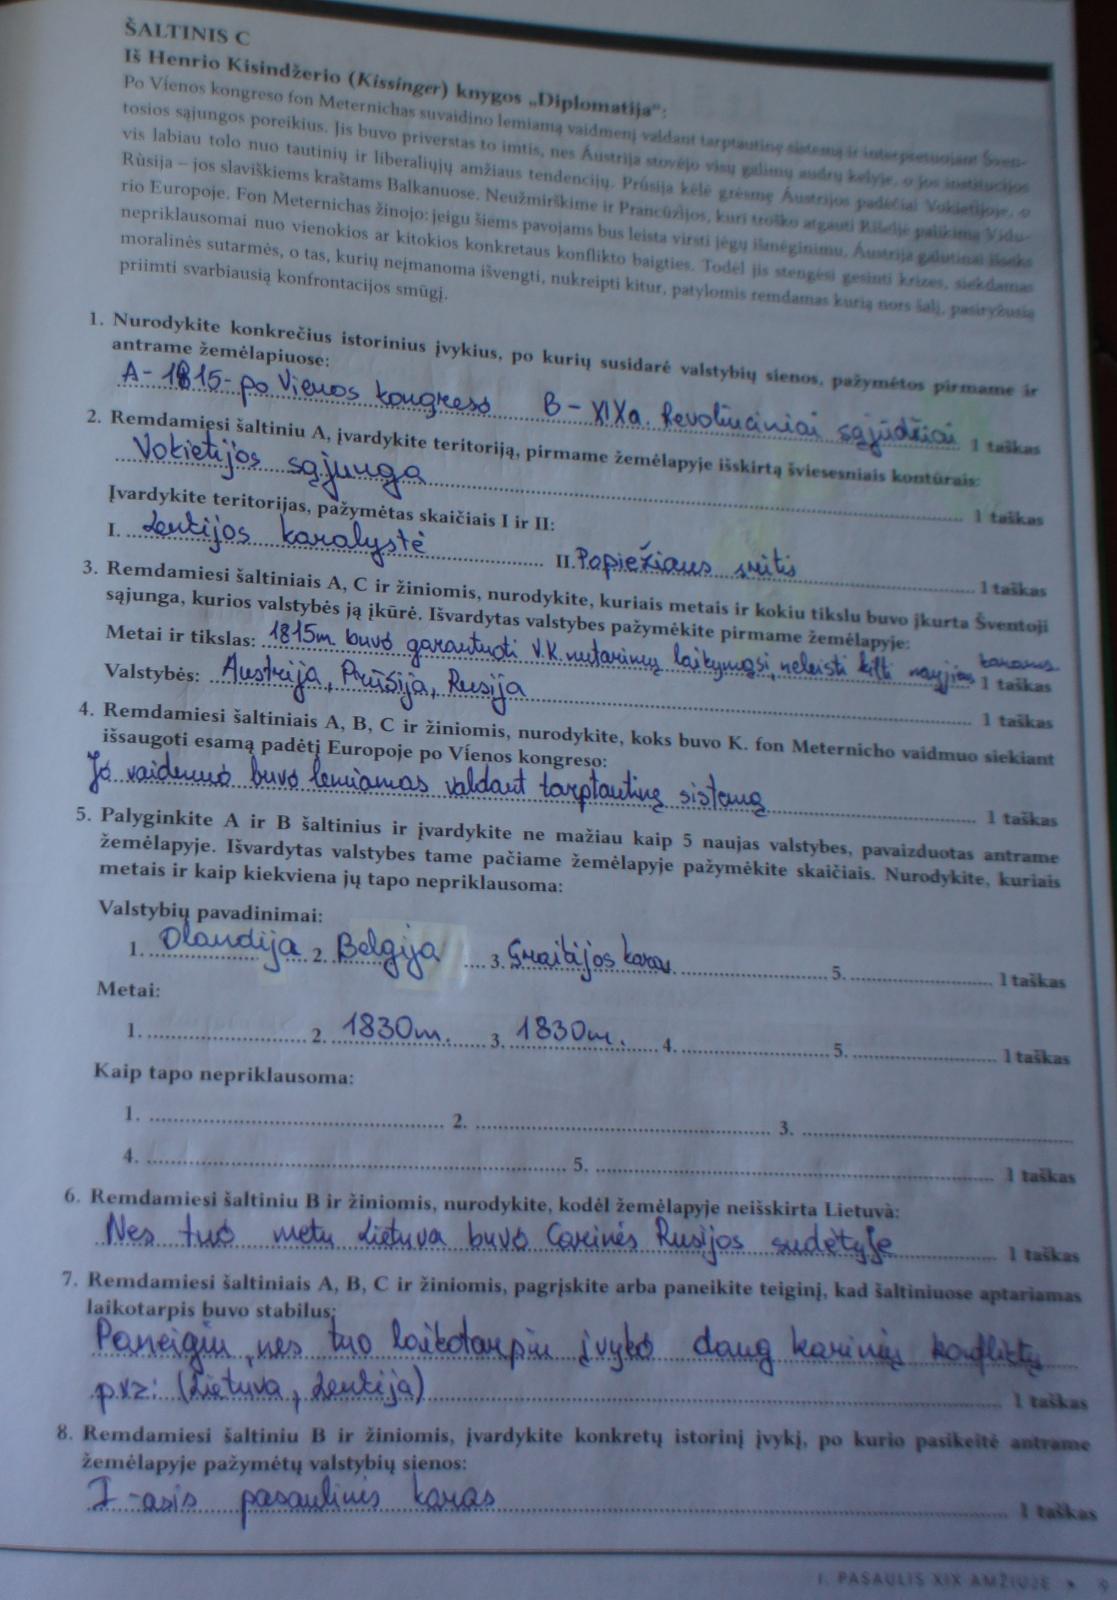 ŠALTINIS C
Iš Henrio Kisindžerio (Kissinger) knygos „Diplomatija“:
Po Vienos kongreso fon Meternichas suvaidino lemiamą vaidmenį valdant tarptautinę sistemą ir interpretuojant Šven-
tosios sąjungos poreikius. Jis buvo priverstas to imtis, nes Austrija stovėjo visų galimų audrų kelyje, o jos institucijos
vis labiau tolo nuo tautinių ir liberaliųjų amžiaus tendencijų. Prūsija kėlė grėsmę Austrijos padėčiai Vokietijoje, o
Rusija – jos slaviškiems kraštams Balkanuose. Neužmirškime ir Prancūzijos, kuri troško atgauti Rišeljė palikimą Vidu-
rio Europoje. Fon Meternichas žinojo: jeigu šiems pavojams bus leista virsti jėgų išmėginimu, Austrija galutinai išseks
nepriklausomai nuo vienokios ar kitokios konkretaus konflikto baigties. Todėl jis stengėsi gesinti krizes, siekdamas
moralinės sutarmės, o tas, kurių neįmanoma išvengti, nukreipti kitur, patylomis remdamas kurią nors šalį, pasiryžusią
priimti svarbiausią konfrontacijos smūgį.
1. Nurodykite konkrečius istorinius įvykius, po kurių susidarė valstybių sienos, pažymėtos pirmame ir
antrame žemėlapiuose:
A- 1815- po Vienos kongreso B – XIXa. Revoliuciniai sąjūdžiai 1 taškas
2. Remdamiesi šaltiniu A, įvardykite teritoriją, pirmame žemėlapyje išskirtą šviesesniais kontūrais:
Vokietijos sąjunga 1 taškas
Įvardykite teritorijas, pažymėtas skaičiais I ir II:
I. Lenkijos karalystė II. Popiežiaus sritis 1 taškas
3. Remdamiesi šaltiniais A, C ir žiniomis, nurodykite, kuriais metais ir kokiu tikslu buvo įkurta Šventoji
sąjunga, kurios valstybės ją įkūrė. Išvardytas valstybes pažymėkite pirmame žemėlapyje:
Metai ir tikslas: 1815m. buvo garantuoti V.K. nutarimų laikymąsi, neleisti kilti naujiems karams 1 taškas
Valstybės: Austrija, Prūsija, Rusija 1 taškas
4. Remdamiesi šaltiniais A, B, C ir žiniomis, nurodykite, koks buvo K. fon Meternicho vaidmuo siekiant
išsaugoti esamą padėtį Europoje po Vienos kongreso:
Jo vaidmuo buvo lemiamas valdant tarptautinę sistemą 1 taškas
5. Palyginkite A ir B šaltinius ir įvardykite ne mažiau kaip 5 naujas valstybes, pavaizduotas antrame
žemėlapyje. Išvardytas valstybes tame pačiame žemėlapyje pažymėkite skaičiais. Nurodykite, kuriais
metais ir kaip kiekviena jų tapo nepriklausoma:
Valstybių pavadinimai:
1. Olandija 2. Belgija 3. Graikijos karas 5. 1 taškas
Metai:
1. 2. 1830m. 3. 1830m. 4. 5. 1 taškas
Kaip tapo nepriklausoma:
1. 2. 3.
4. 5. 1 taškas
6. Remdamiesi šaltiniu B ir žiniomis, nurodykite, kodėl žemėlapyje neišskirta Lietuvà:
Nes tuo metu Lietuva buvo Carinės Rusijos sudėtyje 1 taškas
7. Remdamiesi šaltiniais A, B, C ir žiniomis, pagrįskite arba paneikite teiginį, kad šaltiniuose aptariamas
laikotarpis buvo stabilus:
Paneigiu, nes tuo laikotarpiu įvyko daug karinių konfliktų
pvz: (Lietuva, Lenkija) 1 taškas
8. Remdamiesi šaltiniu B ir žiniomis, įvardykite konkretų istorinį įvykį, po kurio pasikeitė antrame
žemėlapyje pažymėtų valstybių sienos:
I-asis pasaulinis karas 1 taškas
I. PASAULIS XIX AMŽIUJE • 9